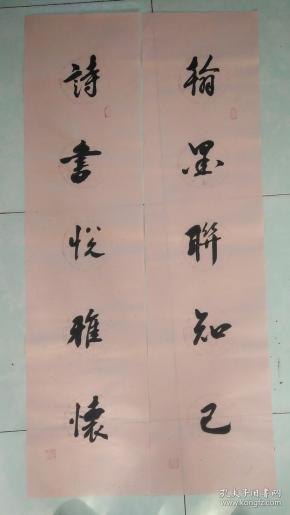 翰墨聯知己
詩書悅雅懷
孔夫子旧书网